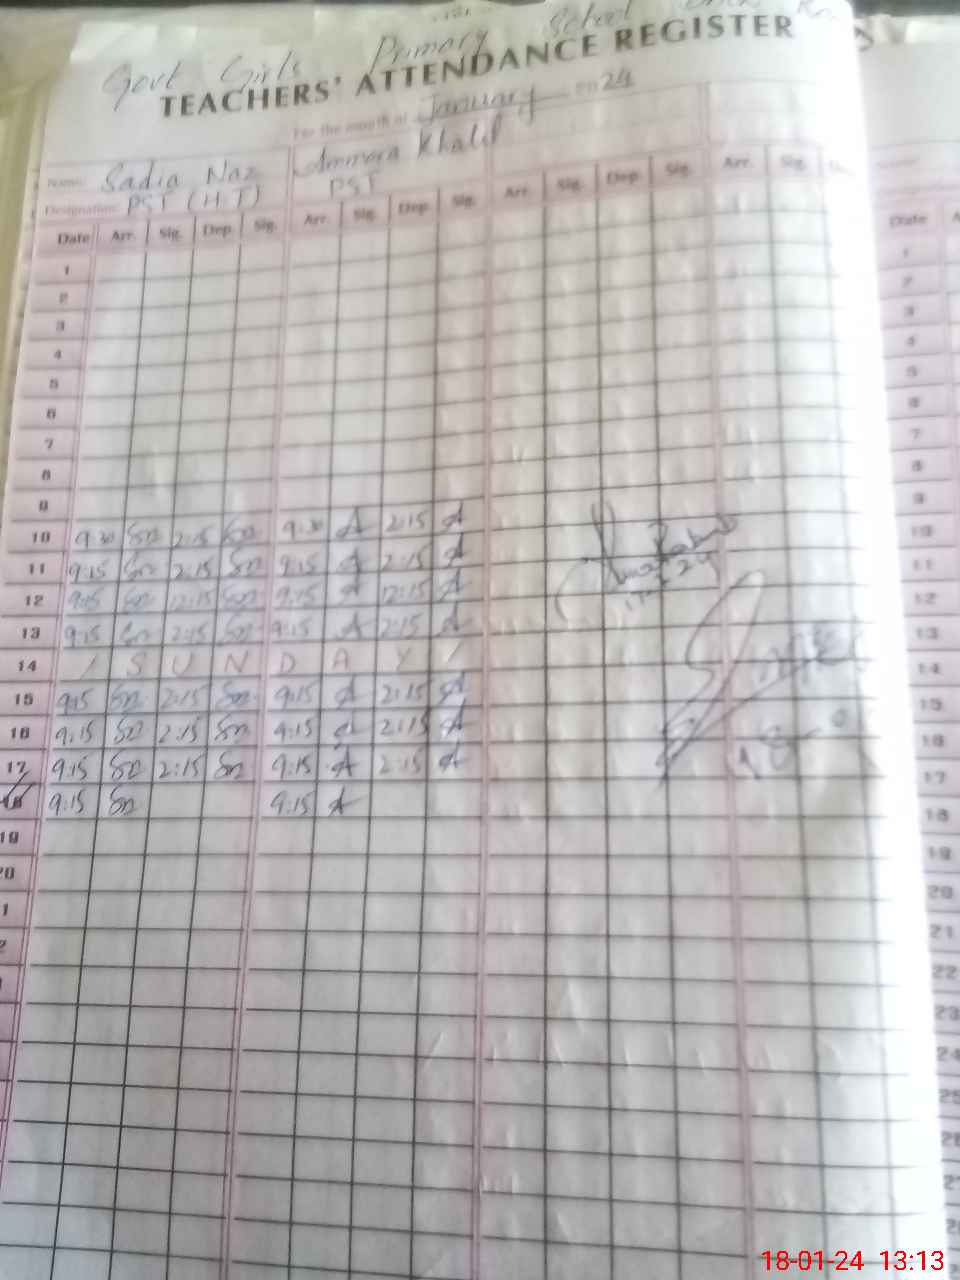 Govt Girls Primary School
TEACHERS' ATTENDANCE REGISTER
For the month of January 2024
Name: Sadia Naz Ammara Khalil
Designation: PST (H.T) PST
Date Arr. Sig. Dep. Sig. Arr. Sig. Dep. Sig. Arr. Sig. Dep. Sig. Arr. Sig. Date
1 1
2 2
3 3
4 4
5 5
6 6
7 7
8 8
9 9
10 9:30 Sn 2:15 Sn 9:30 A 2:15 A 10
11 9:15 Sn 2:15 Sn 9:15 A 2:15 A 11
12 9:15 Sn 12:15 Sn 9:15 A 12:15 A 12
13 9:15 Sn 2:15 Sn 9:15 A 2:15 A 13
14 / S U N D A Y / 14
15 9:15 Sn 2:15 Sn 9:15 A 2:15 A 15
16 9:15 Sn 2:15 Sn 9:15 A 2:15 A 16
17 9:15 Sn 2:15 Sn 9:15 A 2:15 A 17
18 9:15 Sn 9:15 A 18
19 19
20 20
1 21
2 22
23
24
25
26
18-01-24 13:13